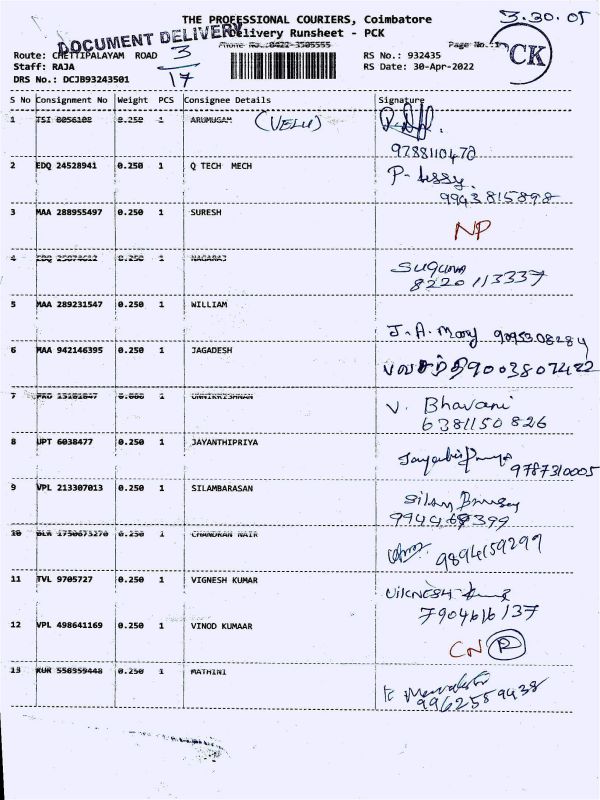 THE PROFESSIONAL COURIERS, Coimbatore
3.30.05
DOCUMENT DELIVERY
Delivery Runsheet - PCK
Phone No.:0422-3505555
Page No.:1
PCK
Route: CHETTIPALAYAM ROAD
3
17
RS No.: 932435
Staff: RAJA
RS Date: 30-Apr-2022
DRS No.: DCJB93243501
S No Consignment No Weight PCS Consignee Details Signature
1 TSI 8056108 0.250 1 ARUMUGAM (VELU)
9788110470
2 EDQ 24528941 0.250 1 Q TECH MECH P-
9943815898
3 MAA 288955497 0.250 1 SURESH
NP
4 EDQ 0.250 1 NAGARAJ
Suguna
8220113337
5 MAA 289231547 0.250 1 WILLIAM
J.A. Mary 9095308284
6 MAA 942146395 0.250 1 JAGADESH
9003807422
7 0.000 1 UNNIKRISHNAN V. Bhavani
6381150826
8 UPT 6038477 0.250 1 JAYANTHIPRIYA
9787310005
9 VPL 213307013 0.250 1 SILAMBARASAN
10 0.250 1 CHANDRAN NAIR
9894159299
11 TVL 9705727 0.250 1 VIGNESH KUMAR
7904616137
12 VPL 498641169 0.250 1 VINOD KUMAAR
CN P
13 KUR 558959448 0.250 1 MATHINI
9962559438